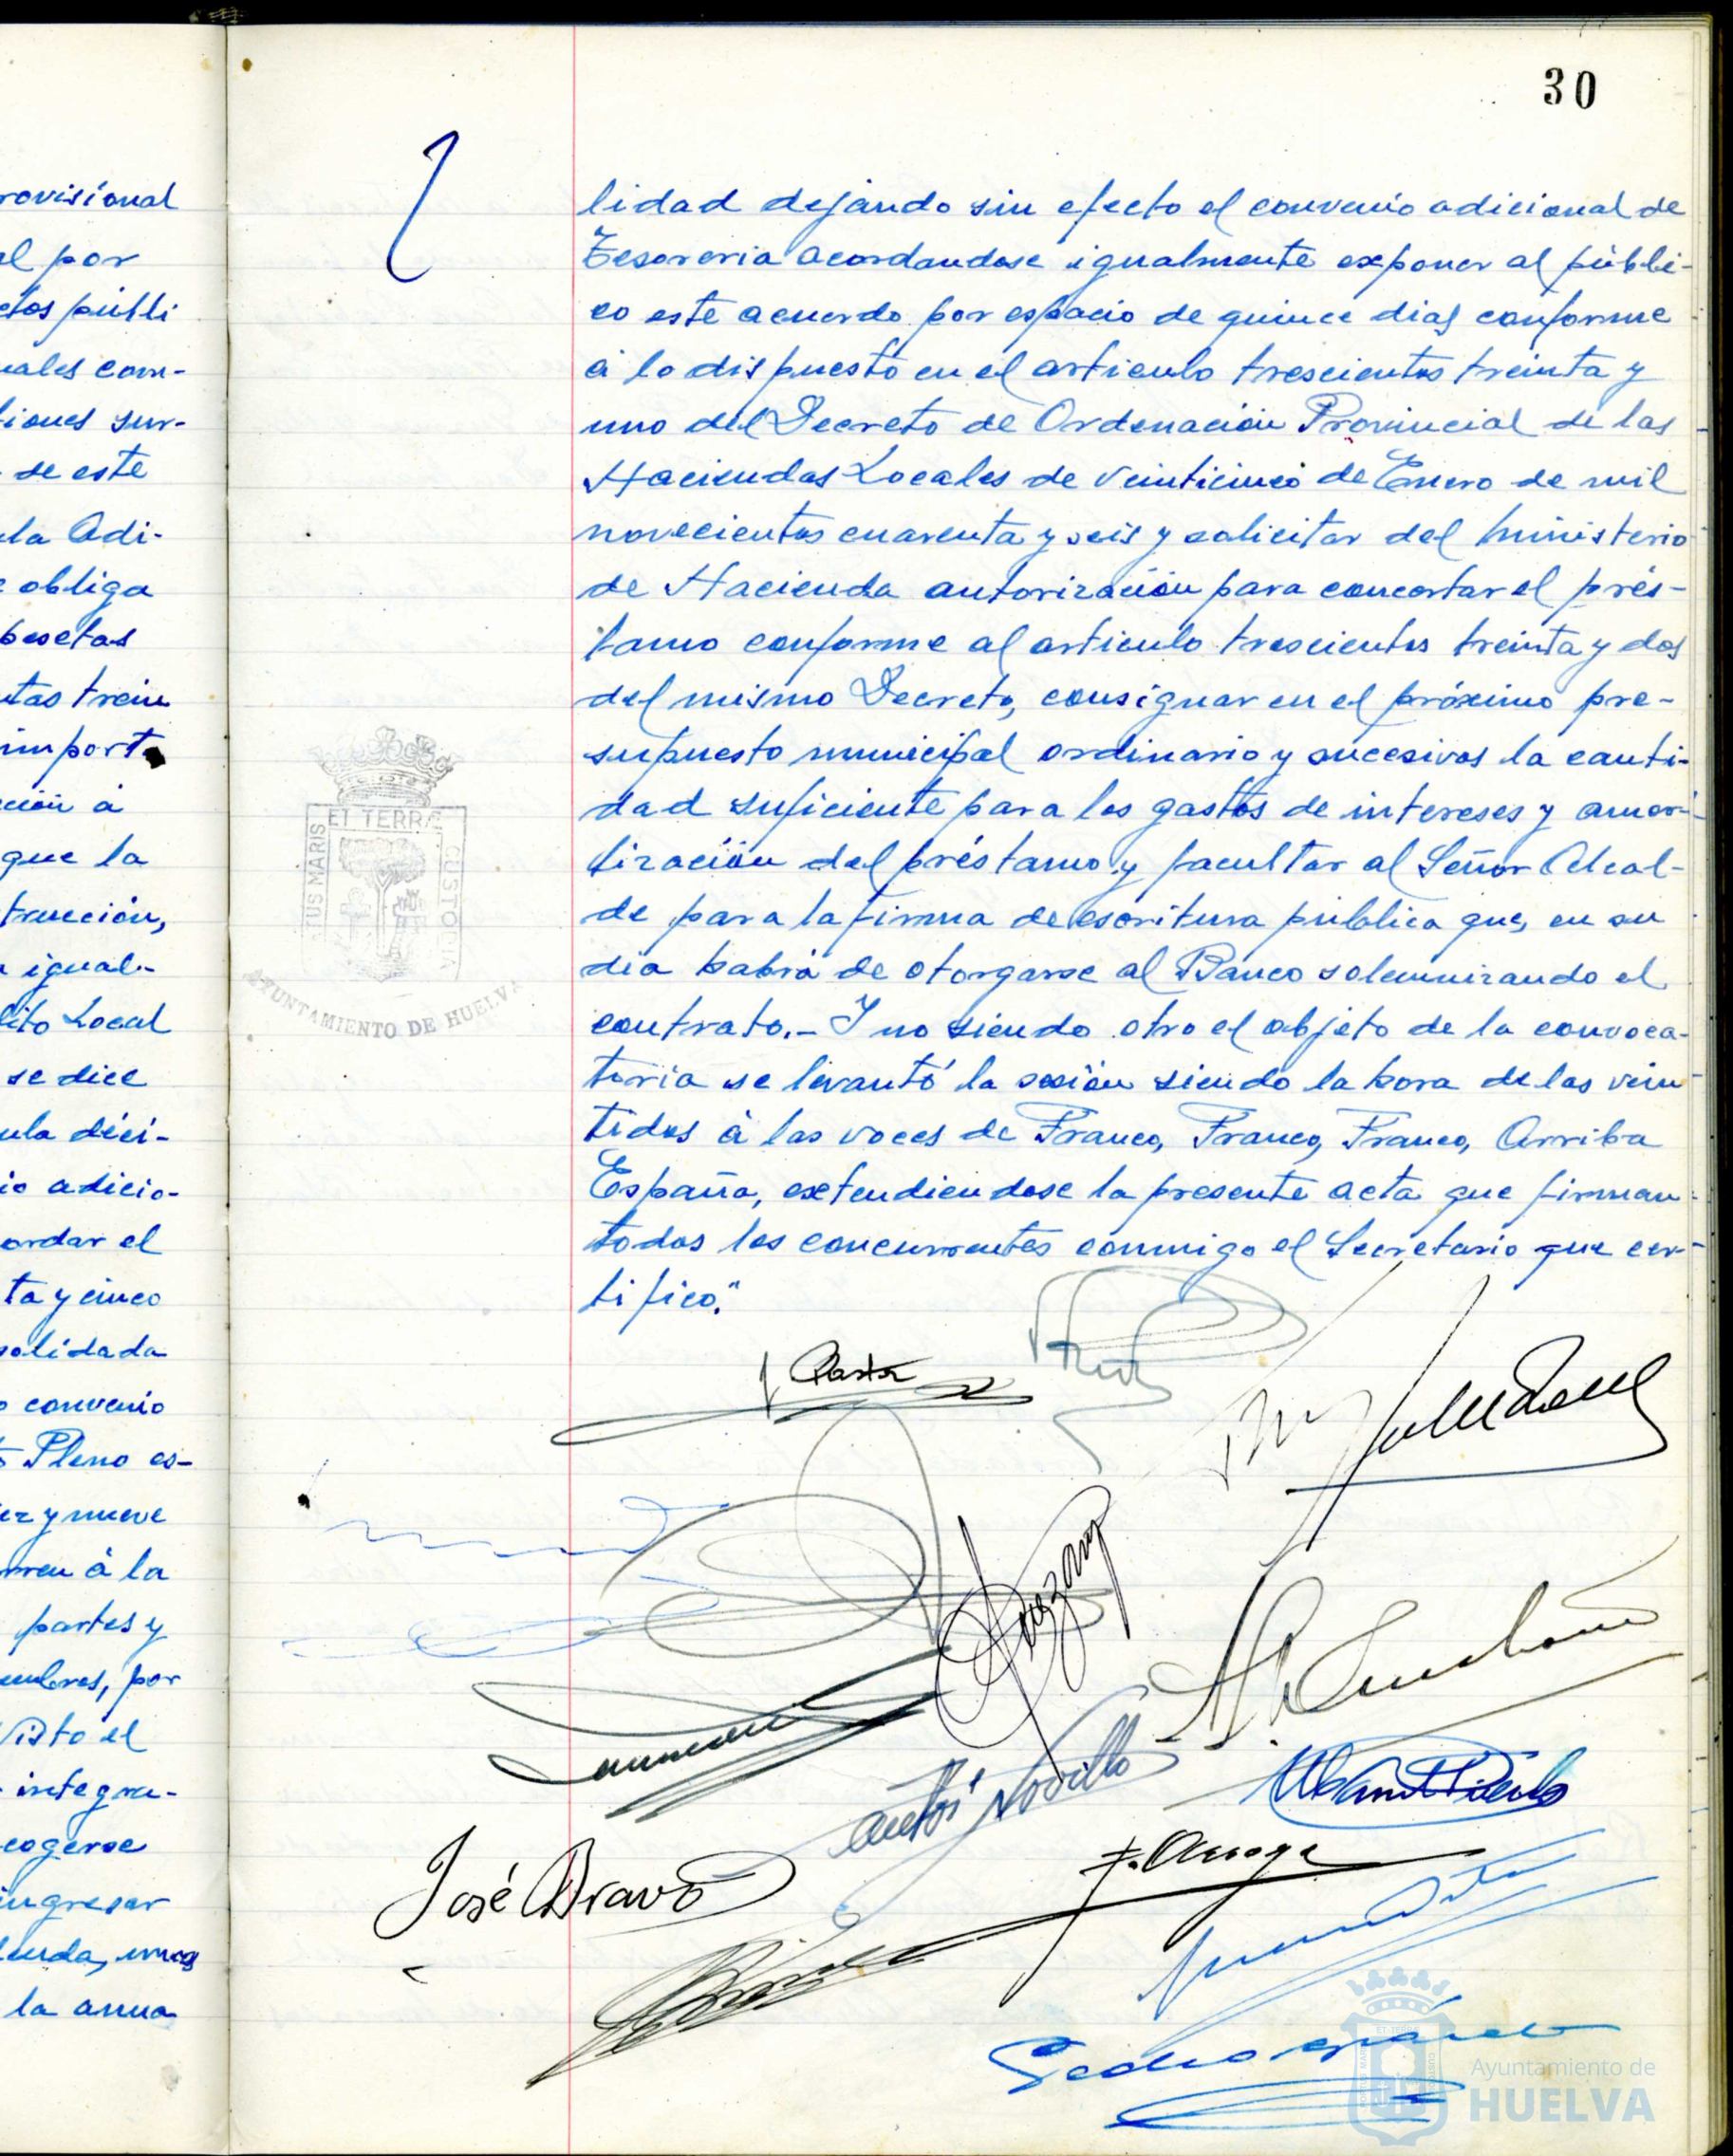 30
rovisional
el por
ctos públi
uales com-
ciones sur-
de este
ula Adi-
e obliga
pesetas
ntas trein
import
ción á
que la
trucción,
a igual-
dito Local
se dice
ula déci-
io adicio-
ordar el
ta y cinco
solidada
o convenio
Pleno es-
ez y nueve
rren á la
partes y
, por
Visto el
integra-
cogerse
ingresar
la anua
lidad dejando sin efecto el convenio adicional de
Tesoreria acordandose igualmente exponer al públi-
co este acuerdo por espacio de quince dias conforme
á lo dispuesto en el articulo trescientos treinta y
uno del Decreto de Ordenación Provincial de las
Haciendas Locales de veinticinco de Enero de mil
novecientos cuarenta y seis y solicitar del Ministerio
de Hacienda autorización para concertar el prés-
tamo conforme al articulo trescientos treinta y dos
del mismo Decreto, consignar en el próximo pre-
supuesto municipal ordinario y sucesivos la canti-
dad suficiente para los gastos de intereses y amor-
tización del préstamo y facultar al Señor Alcal-
de para la firma de escritura pública que, en su
dia habrá de otorgarse al Banco solemnizando el
contrato.- Y no siendo otro el objeto de la convoca-
toria se levantó la sesión siendo la hora de las vein
tidos á las voces de Franco, Franco, Franco, Arriba
España, extendiendose la presente acta que firman
todos los concurrentes conmigo el Secretario que cer-
tifico."
ET TERRÆ
TUS MARIS
CUSTODIA
AYUNTAMIENTO DE HUELVA
José Bravo
Ayuntamiento de
HUELVA